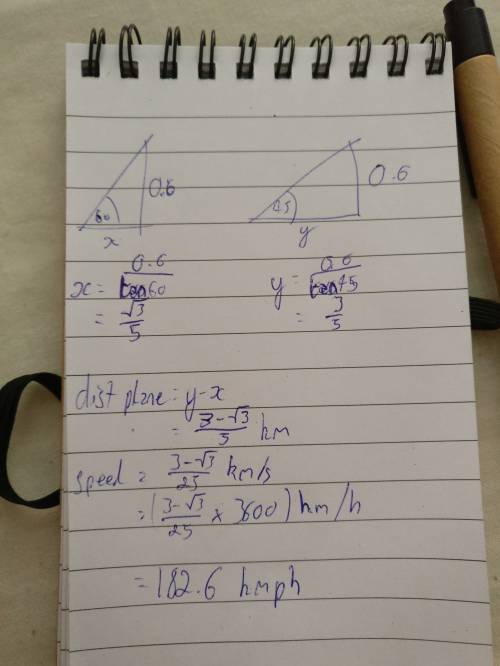 0.6
60
x
0.6
45
y
x = 0.6/tan60
= √3/5
y = 0.6/tan45
= 3/5
dist plane = y-x
= 3-√3/5 km
speed = 3-√3/25 km/s
= (3-√3/25 × 3600) km/h
= 182.6 kmph